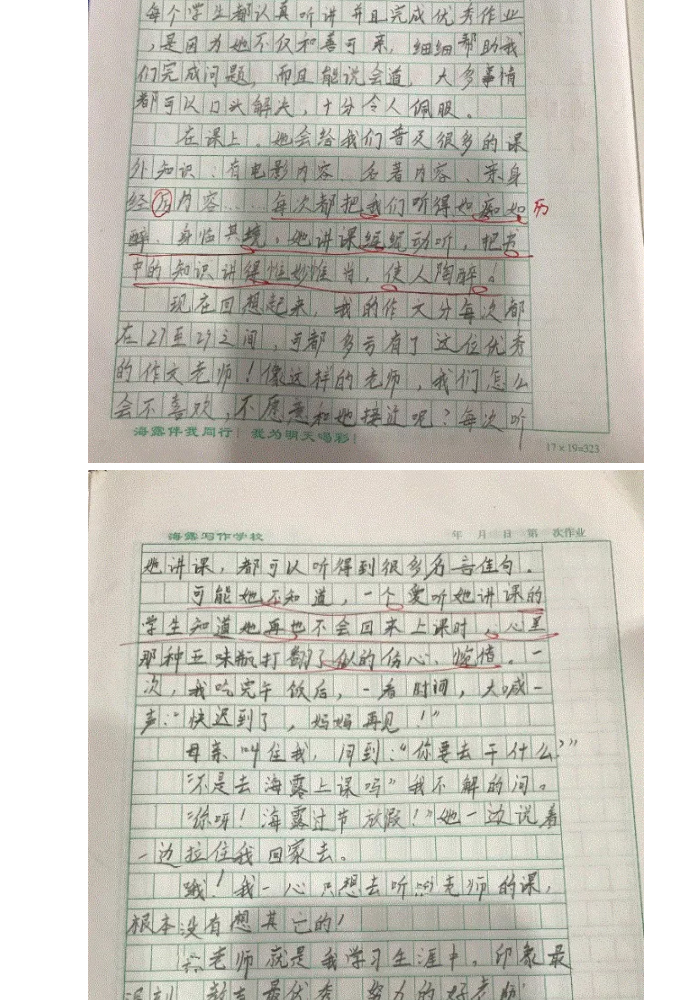 每个学生都认真听讲并且完成优秀作业
，是因为她不仅和善可亲，细细帮助我
们完成问题，而且能说会道，大多事情
都可以口头解决，十分令人佩服。
在课上，她会给我们普及很多的课
外知识：有电影内容、名著内容、亲身
经历内容……每次都把我们听得如痴如
历
醉、身临其境，她讲课绘绘动听，把书
中的知识讲得惟妙惟肖，使人陶醉！
现在回想起来，我的作文分每次都
在27至29之间，可都多亏有了这位优秀
的作文老师！像这样的老师，我们怎么
会不喜欢，不愿意和她接近呢？每次听
海露伴我同行！我为明天喝彩！
17×19=323
海露写作学校 年 月 日 第 次作业
她讲课，都可以听得到很多名言佳句。
可能她不知道，一个爱听她讲课的
学生知道她再也不会回来上课时，心里
那种五味瓶打翻了似的伤心、惋惜。一
次，我吃完午饭后，一看时间，大喊一
声：“快迟到了，妈妈再见！”
母亲叫住我，问到：“你要去干什么？”
“不是去海露上课吗”我不解的问。
“你呀！海露过节放假！”她一边说着
一边拉住我回家去。
哦！我一心只想去听老师的课，
根本没有想其它的！
老师就是我学习生涯中，印象最
深刻、教育最优秀、努力的好老师！